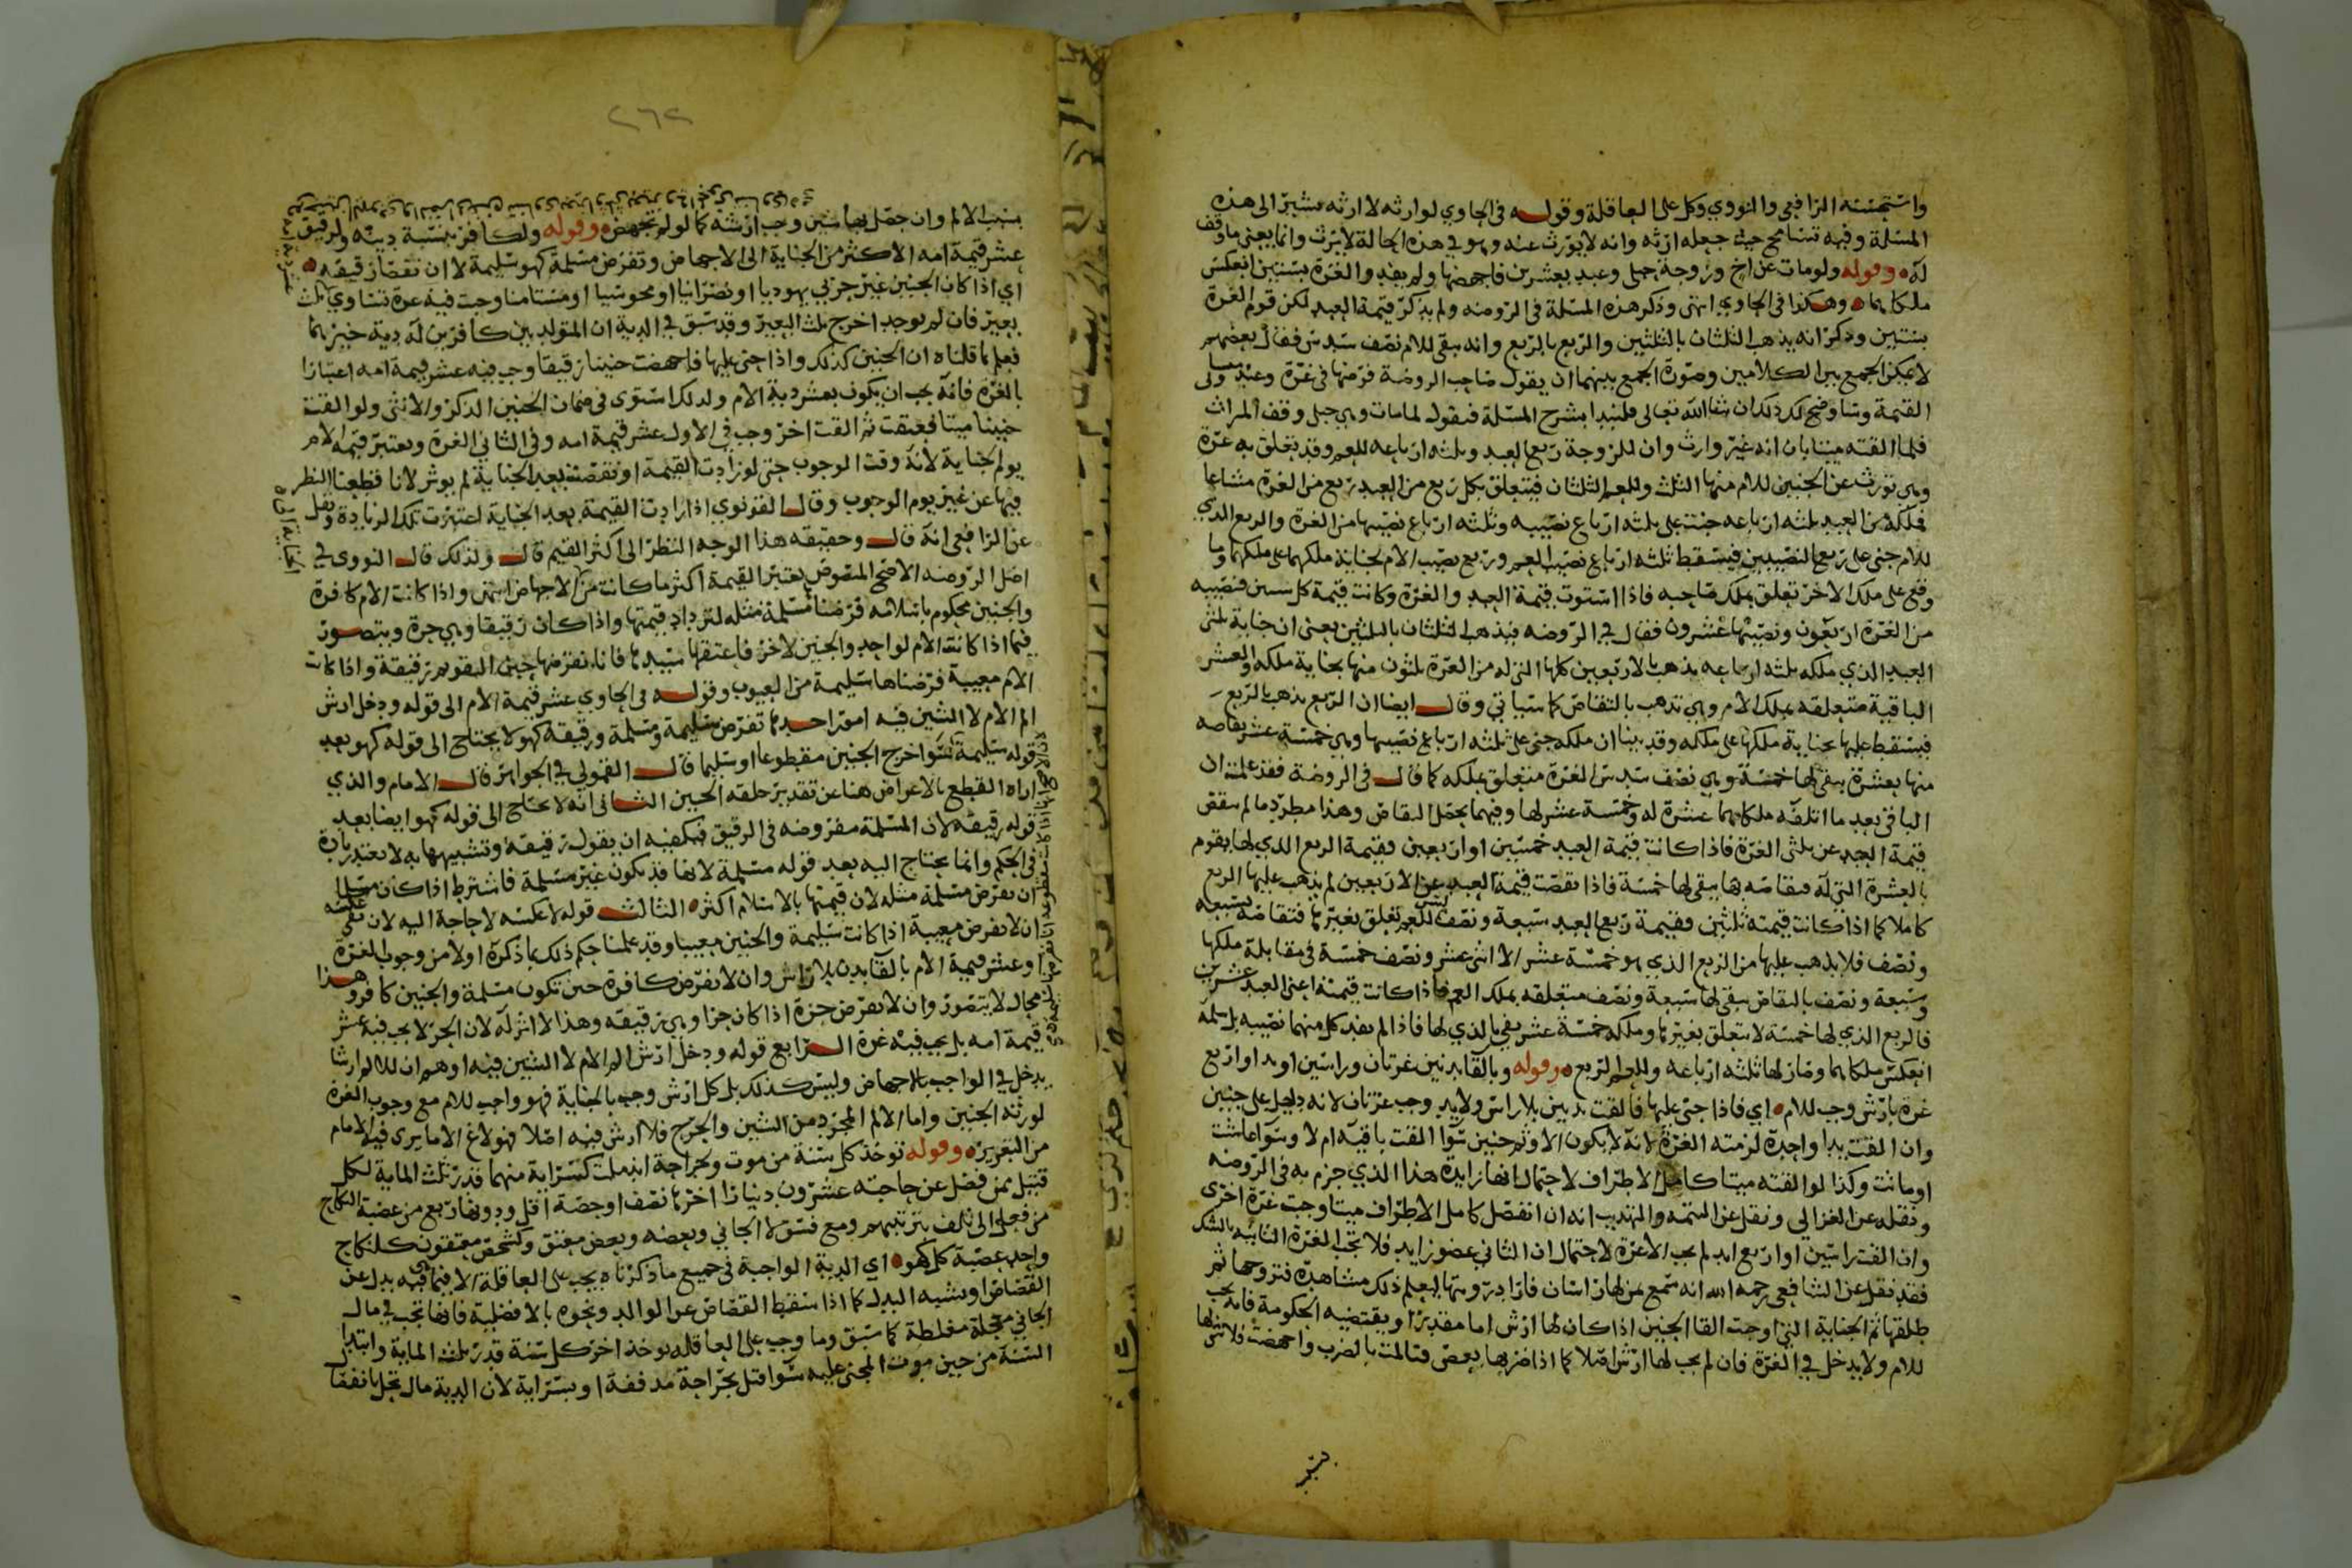 واستحسنه الرافعي والنووي وكل على العاقلة وقوله في الحاوي لوارثه لا ارثه يشير الى هذه
المسئلة وفيه تسامح حيث جعله ارثه وانه لا يورث عنه وهو في هذه الحالة لا يرث وانما يعني ما وقف
له وقوله ولو مات عن اخ وزوجة حمل وعبد بعشرين فاجهضها ولم يفد والغرة بستين انعكس
ملكاهما وهكذا في الحاوي انتهى وذكر هذه المسئلة في الروضه ولم يذكر قيمة العبد لكن قوم الغرة
بستين وذكر انه يذهب الثلثان بالثلثين والربع بالربع وانه يبقى للام نصف سدس فقال بعضهم
لا يمكن الجمع بين الكلامين وصورة الجمع بينهما ان يقول صاحب الروضة فرضها في غرة وعبد
القيمة وساوضح لك ذلك ان شا الله تعالى فلنبدا بشرح المسئلة فنقول لما مات وهي حبلى وقف الميراث
فلما القته ميتا بان انه غير وارث وان للزوجة ربع العبد وثلثه ارباعه للعم وقد تعلق به غرة
وهي تورث عن الجنين للام منها الثلث وللعم الثلثان فيتعلق بكل ربع من العبد ربع من الغرة مشاعا
فملكه من العبد ثلثه ارباعه جنت على ثلثه ارباع نصيبه وثلثه ارباع نصيبها من الغرة والربع الذي
للام جنى على ربع النصيبين فيسقط ثلثه ارباع نصيب العم وربع نصيب الام بجناية ملكهما على ملكهما وما
وقع على ملك الاخر تعلق بملك صاحبه فاذا استوت قيمة العبد والغرة وكانت قيمة كل ستين فنصيبه
من الغرة اربعون ونصيبها عشرون فقال في الروضه فيذهب الثلثان بالثلثين يعني ان جناية ثلثي
العبد الذي ملكه ثلثه ارباعه يذهب بالاربعين كلها التي له من الغرة ثلثون منها بجناية ملكه والعشر
الباقية متعلقه بملك الام وهي تذهب بالتقاص كما سياتي وقال ايضا ان الربع يذهب بالربع
فيسقط عليها بجناية ملكها على ملكه وقد بينا ان ملكه جنى على ثلثه ارباع نصيبها وهي خمسة عشر يقاصه
منها بعشرة يبقى لها خمسة وهي نصف سدس الغرة متعلق بملكه كما قال في الروضة فقد علمت ان
الباقي بعد ما اتلفه ملكاهما عشرة له وخمسة عشر لها وفيهما يحصل التقاص وهذا مطرد ما لم ينقص
قيمة العبد عن ثلثي الغرة فاذا كانت قيمة العبد خمسين او اربعين فقيمة الربع الذي لها يقوم
بالعشرة التي له فيقاصه بها يبقى لها خمسة فاذا نقصت قيمة العبد عن الاربعين لم يذهب عليها الربع
كاملا كما اذا كانت قيمته ثلثين فقيمة ربع العبد سبعة ونصف للعم تعلق بغيرها فتقاصه بسبعه
ونصف فلا يذهب عليها من الربع الذي هو خمسة عشر الا اثنى عشر ونصف خمسة في مقابلة ملكها
وسبعة ونصف بالتقاص يبقى لها سبعة ونصف متعلقه بملك العم فاذا كانت قيمته اعني العبد عشرين
فالربع الذي لها خمسة لا يتعلق بغيرها وملكه خمسة عشر يفي بالذي لها فاذا لم يفد كل منهما نصيبه بل سلمه
انعكس ملكاهما وصار لها ثلثه ارباعه وللعم الربع وقوله وبالقا بدنين غرتان وراسين او يد او اربع
غرة بارش وجب للام اي فاذا جنى عليها فالقت بدنين بلا راس ولا يد وجب غرتان لانه دليل على جنين
وان القت يدا واحدة لزمته الغرة لانه لا يكون الا وثم جنين سوا القت باقيه ام لا وسوا عاشت
او ماتت وكذا لو القته ميتا كامل الاطراف لاحتمال انها زايدة هذا الذي جزم به في الروضه
ونقله عن الغزالي ونقل عن التتمه والتهذيب انه ان انفصل كامل الاطراف ميتا وجب غرة اخرى
وان القت راسين او اربع ايد لم يجب الا غرة لاحتمال ان الثاني عضو زايد فلا تجب الغرة الثانيه بالشك
فقد نقل عن الشافعي رحمه الله انه سمع بمن لها راسان فاراد رؤيتها ليعلم ذلك مشاهدة فتزوجها ثم
طلقها ثم الجناية التي اوجبت القا الجنين اذا كان لها ارش اما مقدرا او يقتضيه الحكومة فانه يجب
للام ولا يدخل في الغرة فان لم يجب لها ارش اصلا كما اذا ضربها بعض فتالمت بالضرب واجهضت فلا شي لها
بسبب
٢٦٢
بسبب الالم وان حصل بها شين وجب ارشه كما لو لم تجهض وقوله ولكافر بنسبة دينه ولرقيق
عشر قيمة امه الاكثر من الجناية الى الاجهاض وتفرض مسلمة كهو سليمة لا ان نقصا رقيقه
اي اذا كان الجنين غير حربي يهوديا او نصرانيا او مجوسيا او مستامنا وجبت فيه غرة تساوي ثلث
بعير فان لم يوجد اخرج ثلث البعير وقد سبق في الدية ان المتولد بين كافرين له دية خيرهما
فعلم بما قلناه ان الجنين كذلك واذا جنى عليها فاجهضت جنينا رقيقا وجب فيه عشر قيمة امه اعتبارا
بالغره فانه يجب ان يكون بعشر دية الام ولذلك استوى في ضمان الجنين الذكر والانثى ولو القت
جنينا ميتا فعتقت ثم القت اخر وجب في الاول عشر قيمة امه وفي الثاني الغرة ويعتبر قيمة الام
يوم الجناية لانه وقت الوجوب حتى لو زادت القيمة او نقصت بعد الجناية لم يوثر لانا قطعنا النظر
فيها عن غير يوم الوجوب وقال القونوي اذا زادت القيمة بعد الجناية اعتبرت تلك الزيادة ونقل
عن الرافعي انه قال وحقيقه هذا الوجه النظر الى اكثر القيم قال ولذلك قال النووي في
اصل الروضه الاصح المنصوص يعتبر القيمة اكثر ما كانت من الاجهاض انتهى واذا كانت الام كافرة
والجنين محكوم باسلامه فرضنا مسلمة مثله لتزداد قيمتها واذا كان رقيقا وهي حرة ويتصور
فيما اذا كانت الام لواحد والجنين لاخر فاعتقها سيدها فانا نفرضها حين التقويم رقيقة واذا كانت
الام معيبة فرضناها سليمة من العيوب وقوله في الحاوي عشر قيمة الام الى قوله ودخل ارش
الم الام لا الشين فيه امور احدها تفرض سليمة ومسلمة ورقيقه كهو لا يحتاج الى قوله كهو بعد
قوله سليمة سوا خرج الجنين مقطوعا او سليما قال القمولي في الجواهر قال الامام والذي
اراه القطع بالاعراض هنا عن تقدير خلقه الجنين الثاني انه لا يحتاج الى قوله كهو ايضا بعد
قوله رقيقه لان المسلمة مفروضه في الرقيق فيكفيه ان يقول رقيقة وتشبيهها به لا يفيد زيادة
في الحكم وانما يحتاج اليه بعد قوله مسلمة لانها قد تكون غير مسلمة فاشترط اذا كان مسلما
ان نفرض مسلمة مثله لان قيمتها بالاسلام اكثر الثالث قوله لا عكسه لا حاجة اليه لان نفي عكسه
ان لا نفرض معيبة اذا كانت سليمة والجنين معيبا وقد علمنا حكم ذلك بما ذكره اولا من وجوب الغرة
او عشر قيمة الام بالقا بدن بلا راس وان لا نفرض كافرة حين تكون مسلمة والجنين كافر وهذا
محال لا يتصور وان لا نفرض حرة اذا كان حرا وهي رقيقه وهذا لا اثر له لان الحر لا يجب فيه عشر
قيمة امه بل يجب فيه غرة الرابع قوله ودخل ارش الم الام لا الشين فيه اوهم ان للالم ارشا
يدخل في الواجب بالاجهاض وليس كذلك بل كل ارش وجب بالجناية فهو واجب للام مع وجوب الغرة
لورثه الجنين واما الالم المجرد من الشين والجرح فلا ارش فيه اصلا فهو لاغ الا ما يرى فيه الامام
من التعزير وقوله توخذ كل سنة من موت وبجراحة اندملت كسراية منهما قدر ثلث الماية لكل
قتيل ممن فضل عن حاجته عشرون دينارا اخرها نصف او حصة اقل ودونها ربع من عصبة النكاح
من فعل والى تلف بترتيبهم ومع فسق لا الجاني وبعضه وبعض معتق وكشخص معتقون كلنكاح
واحد عصبة كل كهو اي الدية الواجبة في جميع ما ذكرناه يجب على العاقلة الا فيما فيه بدل عن
القصاص او شبيه البدل كما اذا سقط القصاص عن الوالد ونحوه بالافضلية فانها تجب في مال
الجاني معجلة مغلظة كما سبق وما وجب على العاقله يوخذ اخر كل سنة قدر ثلث الماية وابتدا
السنة من حين موت المجنى عليه سوا قتل بجراحة مدففة او بسراية لان الدية مال تحل بانقضا